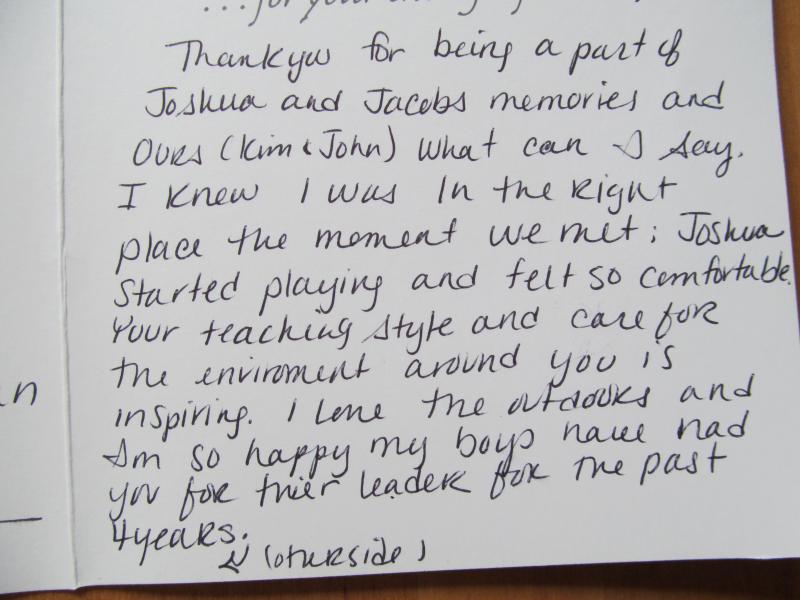 ...for your
Thankyou for being a part of
Joshua and Jacobs memories and
Ours (Kim & John) What can I say.
I knew I was in the right
place the moment we met; Joshua
Started playing and felt so comfortable.
Your teaching style and care for
the enviroment around you is
inspiring. I love the outdoors and
Am so happy my boys have had
you for thier leader for the past
4 years.
(otherside)